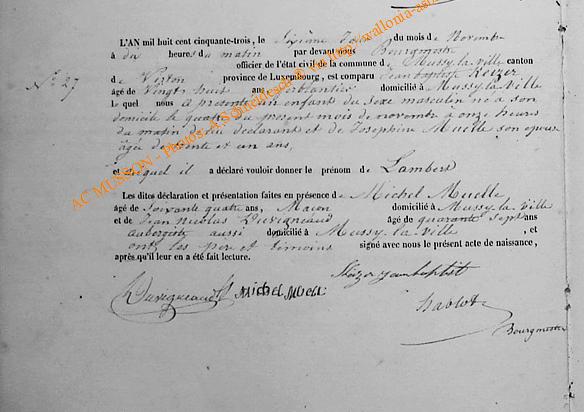 N.° 27
L'AN mil huit cent cinquante-trois, le Sixième Jour du mois de Novembre
à dix heures du matin par devant nous Bourgmestre
officier de l'état civil de la commune de Mussy-la-Ville canton
de Virton province de Luxembourg, est comparu Jean baptiste Keizer
âgé de Vingt huit ans ferblantier domicilié à Mussy-la-Ville
le quel nous a présenté un enfant du sexe masculin né à son
domicile le quatre du présent mois de novembre à onze heures
du matin de lui déclarant et de Josephine Muelle son épouse
âgée de trente et un ans,
et auquel il a déclaré vouloir donner le prénom de Lambert
Les dites déclaration et présentation faites en présence de Michel Muelle
âgé de soixante quatre ans, Macon domicilié à Mussy la Ville
et de Jean Nicolas Duvigneaud âgé de quarante sept ans
aubergiste aussi domicilié à Mussy la Ville , et
ont les père et témoins signé avec nous le présent acte de naissance,
après qu'il leur en a été fait lecture.
Keizer jean baptist
Duvigneaud Michel
Bourgmestre
AC MUSSON - Photos: A.Schneidesch